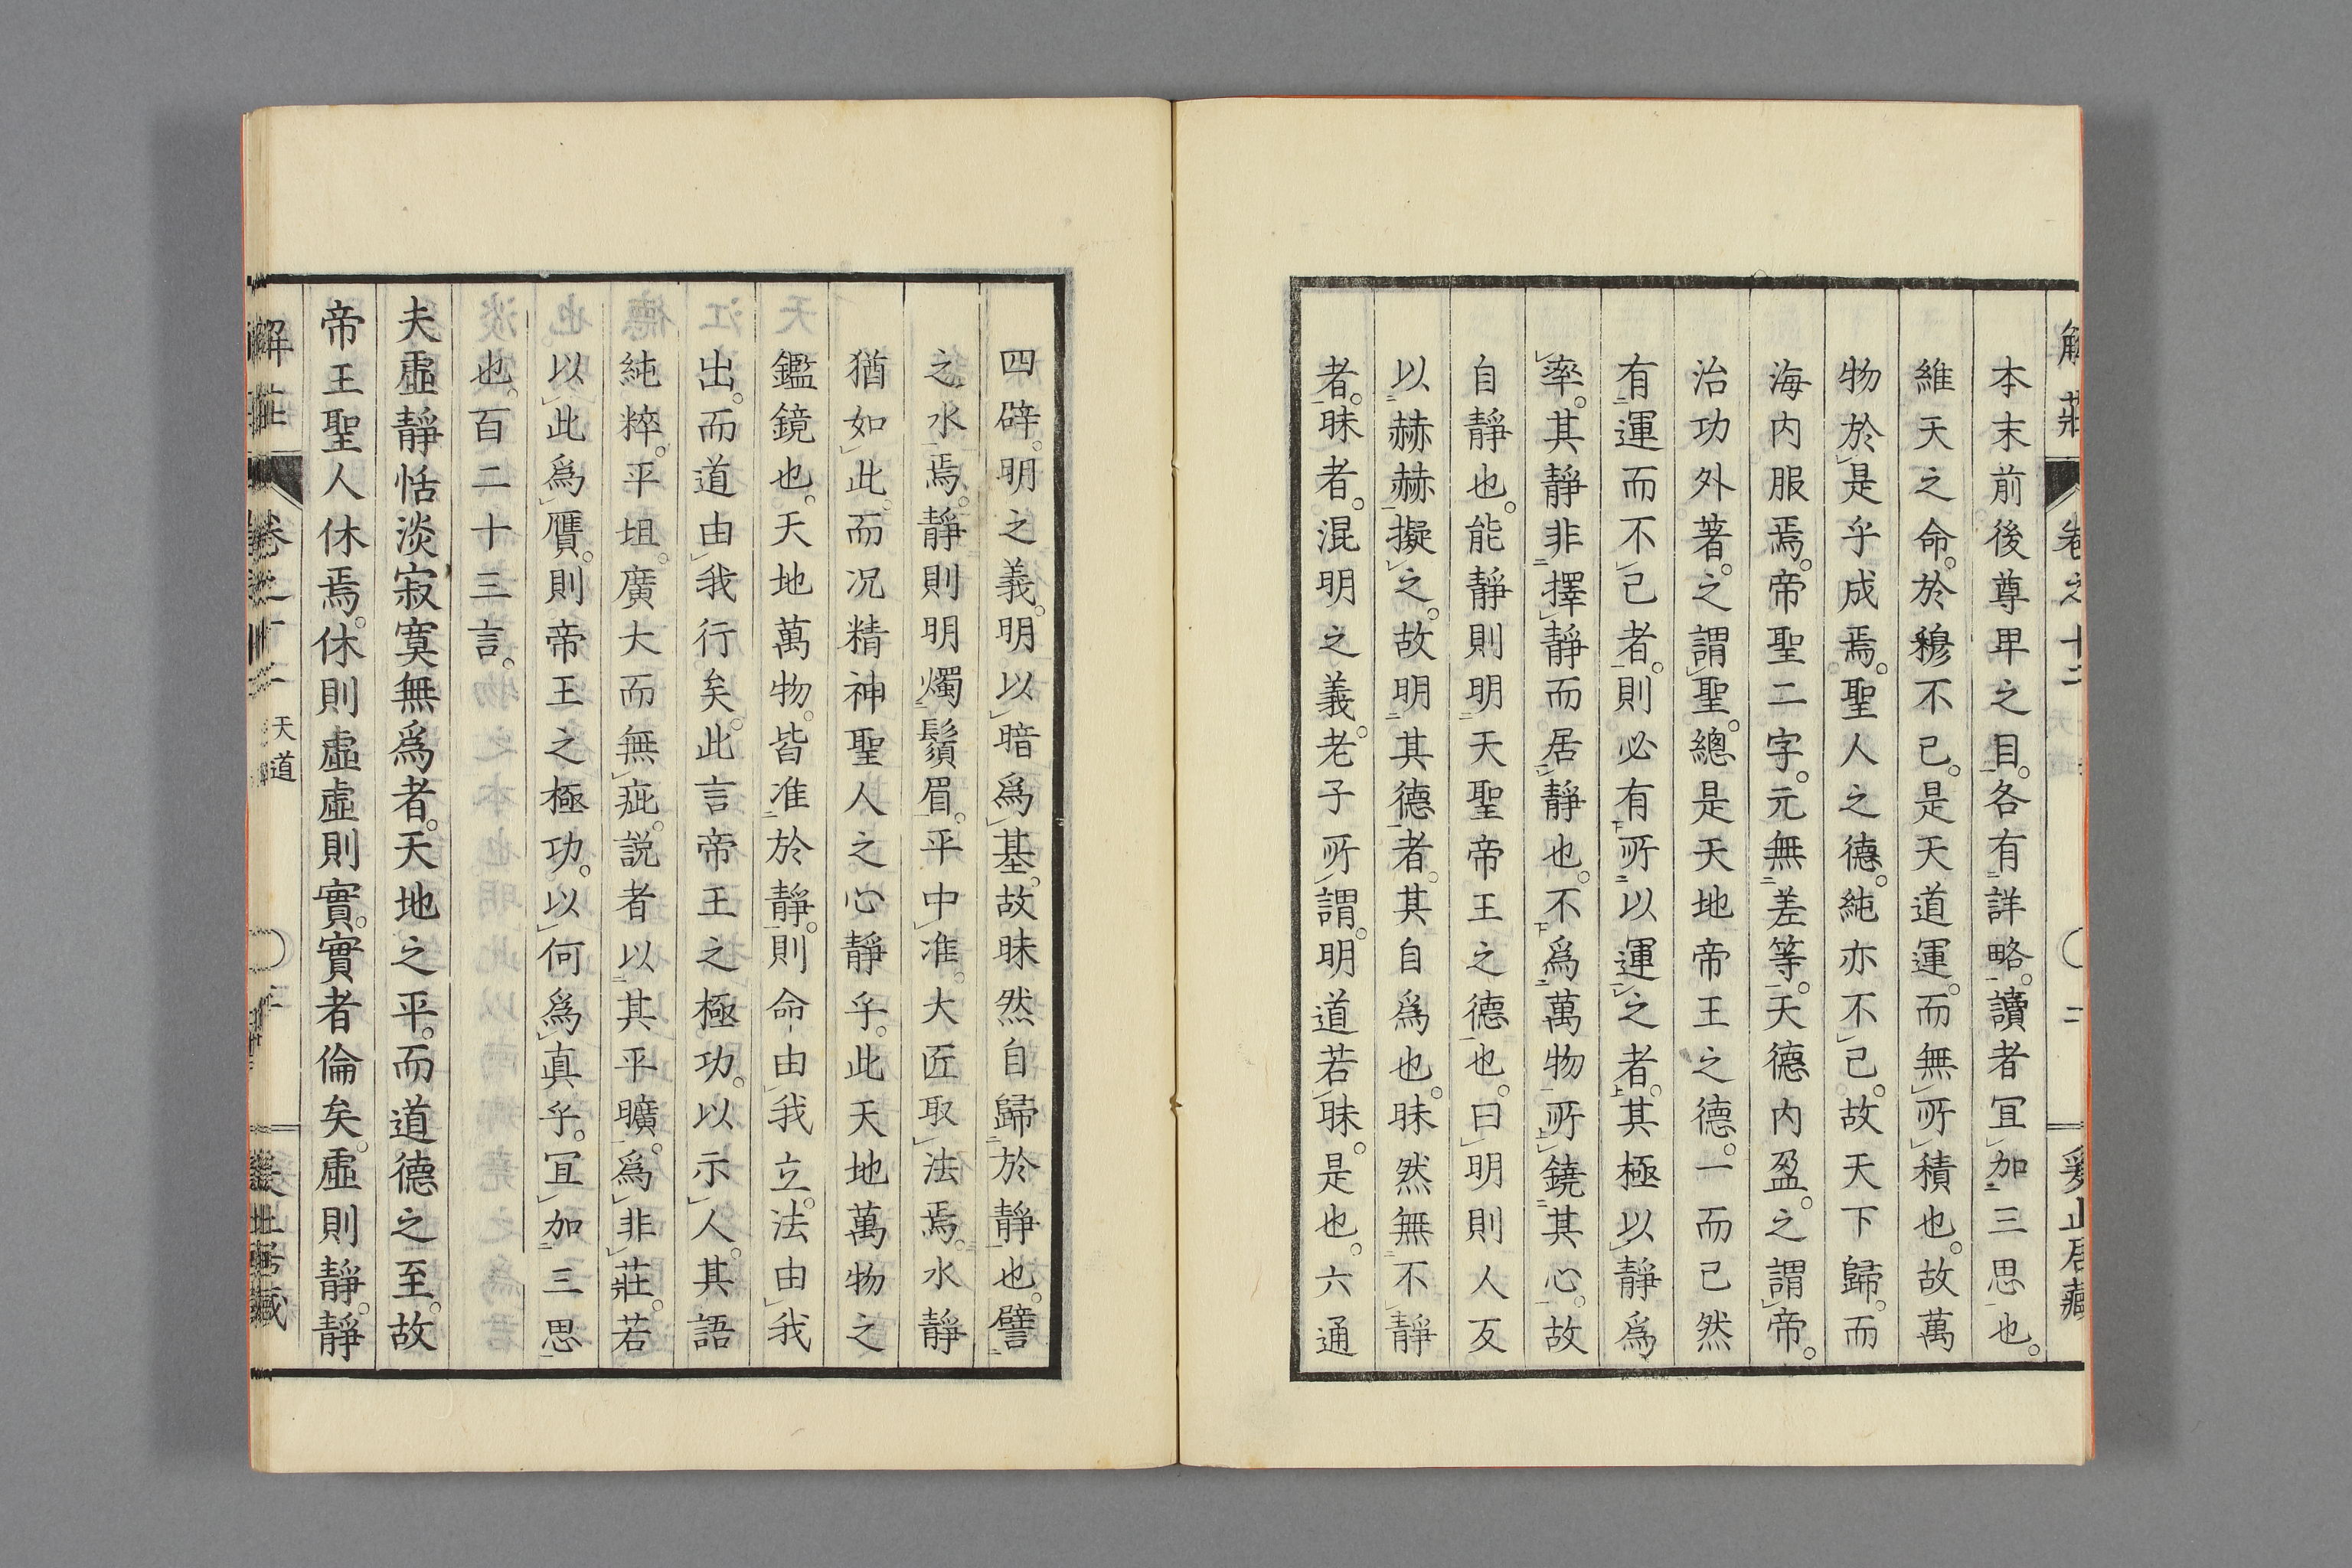 解莊 卷之十二 二
本末前後尊卑之目。各有詳略。讀者冝加三思也。
維天之命。於穆不已。是天道運。而無所積也。故萬
物於是乎成焉。聖人之德。純亦不已。故天下歸。而
海内服焉。帝聖二字。元無差等。天德内盈。之謂帝。
治功外著。之謂聖。總是天地帝王之德。一而已然
有運而不已者。則必有所以運之者。其極以静爲
率。其静非擇静而居静也。不爲萬物所鐃其心。故
自静也。能静則明天聖帝王之德也。曰明則人反
以赫赫擬之。故明其德者。其自爲也。昧然無不静
者。昧者。混明之義。老子所謂。明道若昧。是也。六通
四辟。明之義。明以暗爲基。故昧然自歸於静也。譬
之水焉。静則明燭鬚眉。平中准。大匠取法焉。水静
猶如此。而况精神聖人之心静乎。此天地萬物之
鑑鏡也。天地萬物。皆准於静。則命由我立。法由我
出。而道由我行矣。此言帝王之極功。以示人。其語
純粹。平坦。廣大而無疵。説者以其平曠。爲非莊。若
以此爲贋。則帝王之極功。以何爲真乎。冝加三思
也。百二十三言。
夫虛静恬淡寂寞無爲者。天地之平。而道德之至。故
帝王聖人休焉。休則虛虛則實。實者倫矣。虛則静。静
解莊 天道